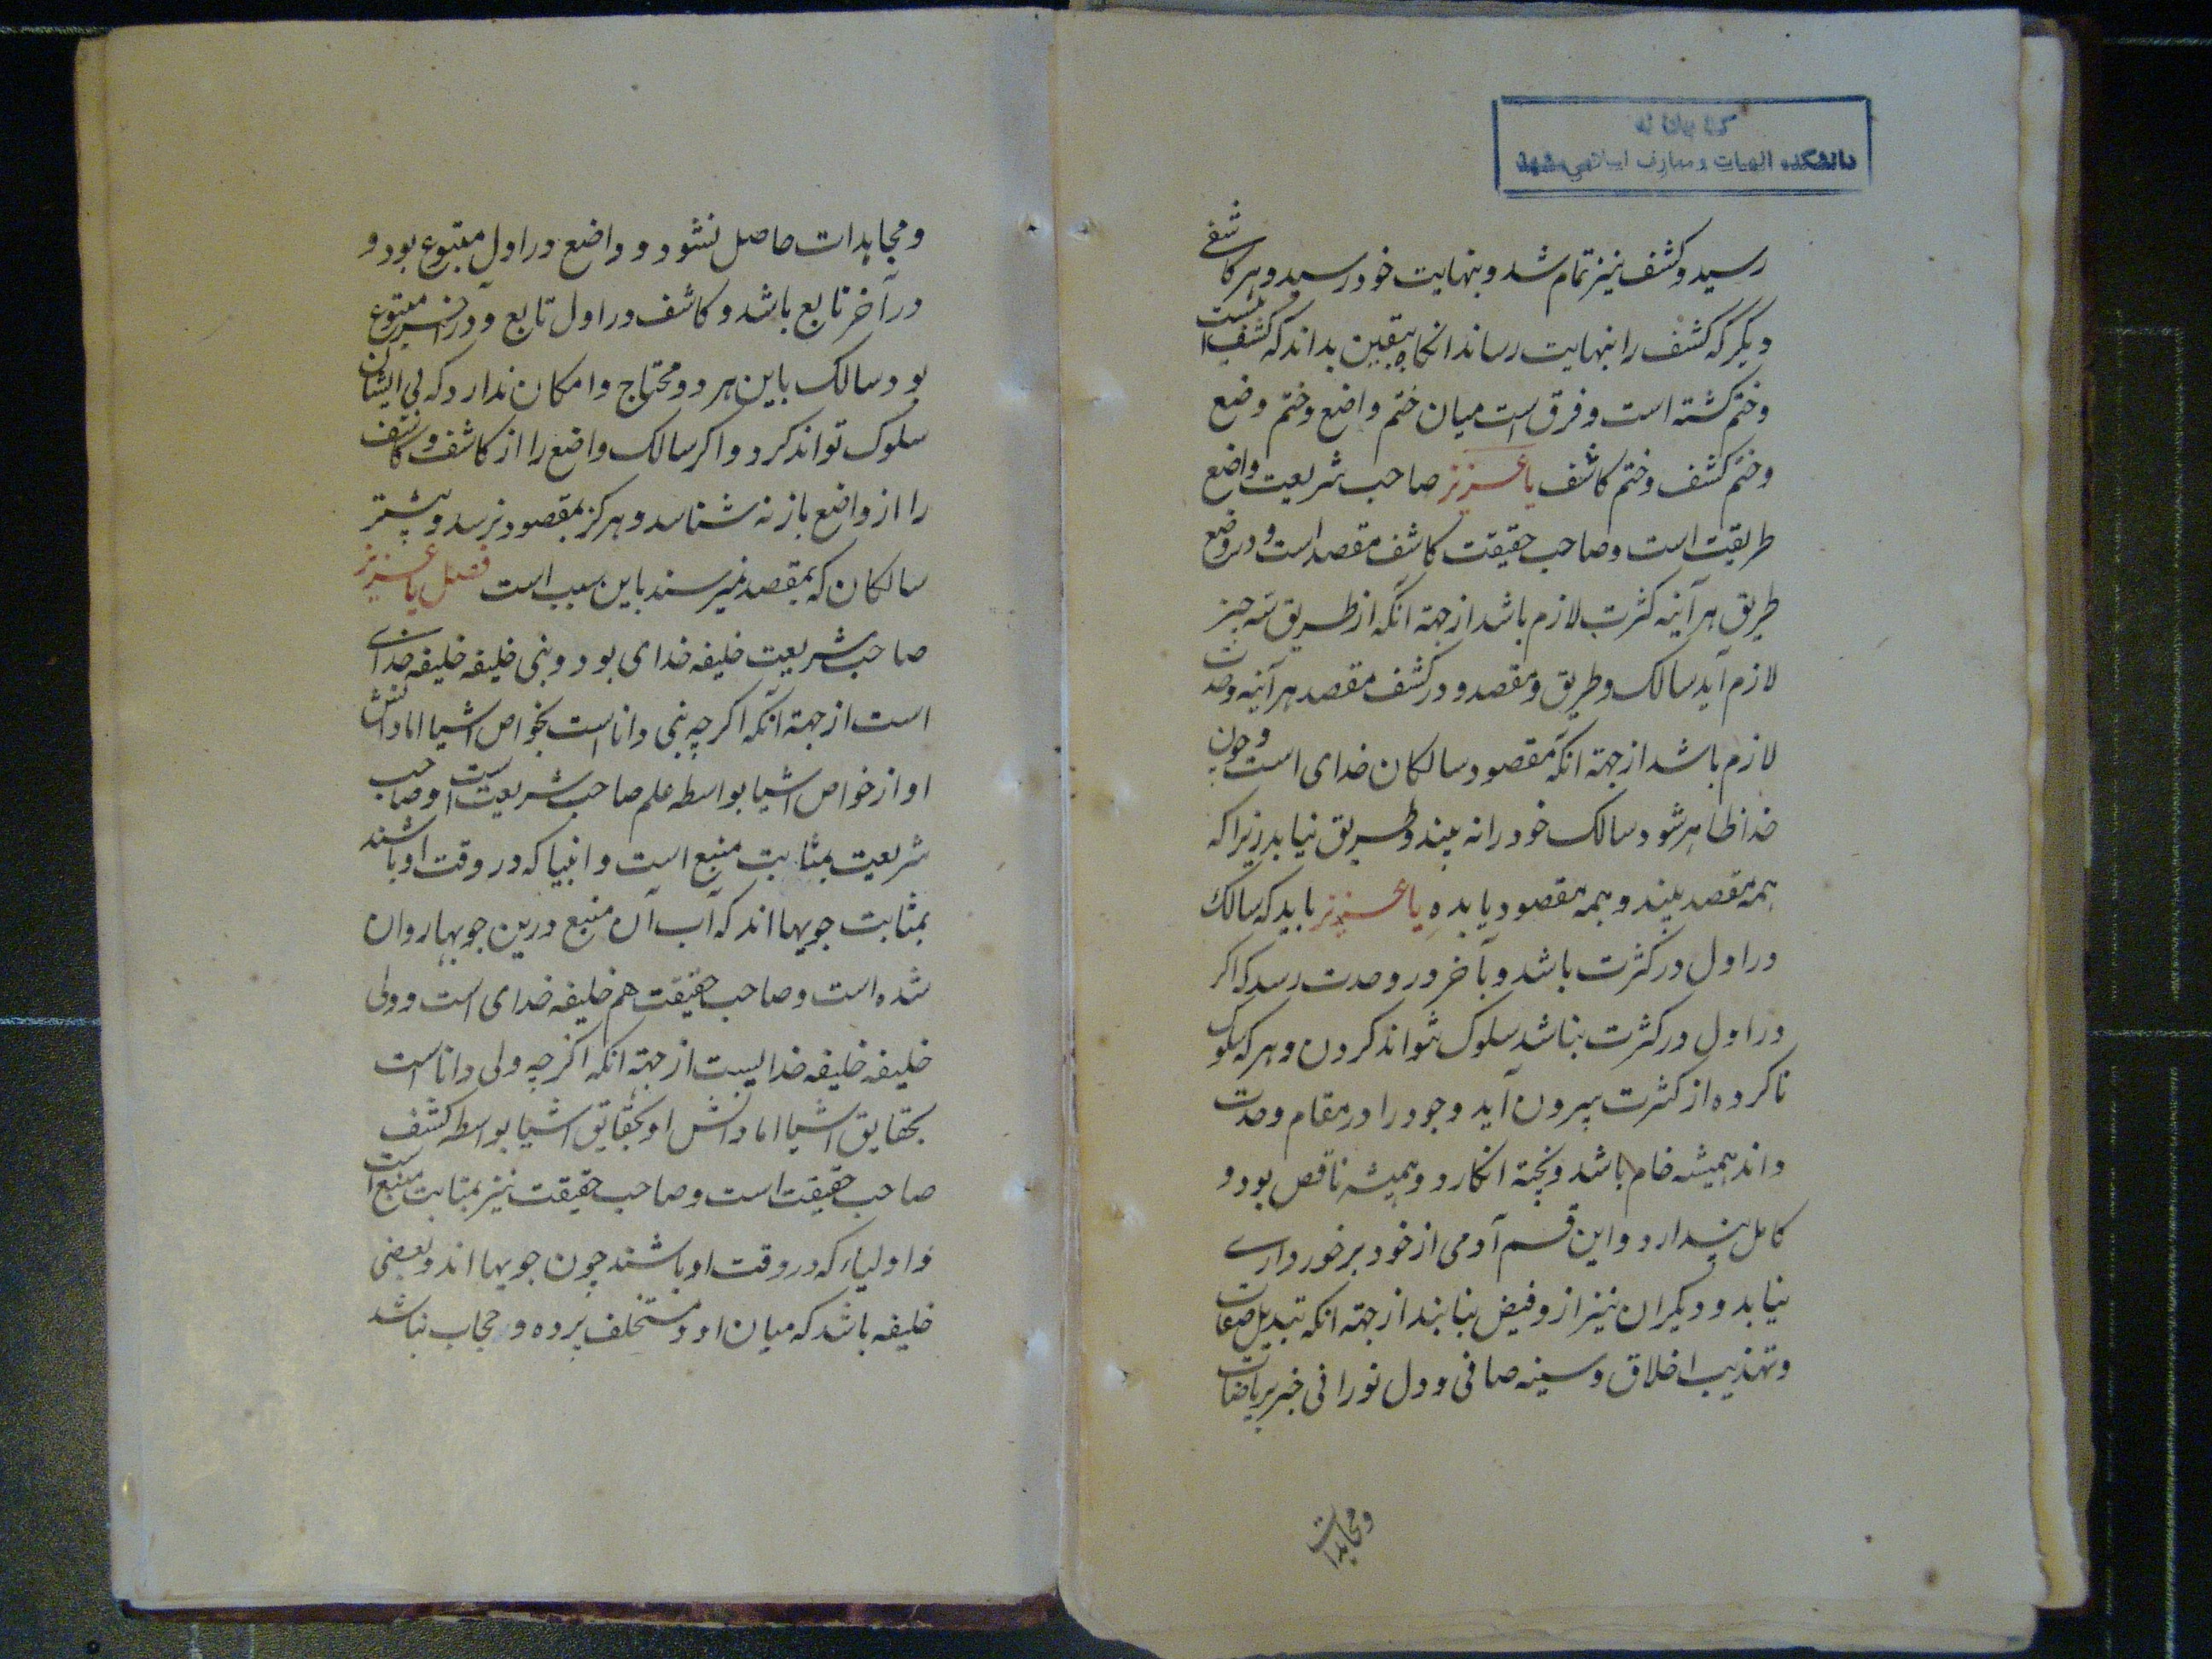 کتابخانه
دانشکده الهیات و معارف اسلامی مشهد
رسید و کشف نیز تمام شد و بنهایت خود رسید و هر کاشفی
دیگر که کشف را بنهایت رساند انکاه بیقین بداند که کشف است
و ختم کشته است و فرق است میان ختم واضع و ختم وضع
و ختم کشف و ختم کاشف یا عزیز صاحب شریعت واضع
طریقت است و صاحب حقیقت کاشف مقصد است و در وضع
طریق هر آینه کثرت لازم باشد از جهة آنکه از طریق سه چیز
لازم آید سالک و طریق و مقصد و در کشف مقصد هر آینه وحدت
لازم باشد از جهة انکه مقصود سالکان خدای است و چون
خدا ظاهر شود سالک خود را نه بیند و طریق نیابد زیرا که
همه مقصد بیند و همه مقصود یابد یا عزیز باید که سالک
در اول در کثرت باشد و بآخر در وحدت رسد که اکر
در اول در کثرت نباشد سلوک نتواند کردن و هر که سلوک
ناکرده از کثرت بیرون آید و خود را در مقام وحدت
داند همیشه خام باشد و پخته انکارد و همیشه ناقص بود و
کامل پندارد و این قسم آدمی از خود برخورداری
نیابد و دیکران نیز ازو فیض نیابند از جهة انکه تبدیل صفات
و تهذیب اخلاق و سینه صافی و دل نورانی جز بریاضات
و مجاهدات
و مجاهدات حاصل نشود و واضع در اول متبوع بود و
در آخر تابع باشد و کاشف در اول تابع و در آخر متبوع
بود سالک باین هر دو محتاج و امکان ندارد که بی ایشان
سلوک تواند کرد و اکر سالک واضع را از کاشف و کاشف
را از واضع باز نه شناسد و هرکز بمقصود نرسد و بیشتر
سالکان که بمقصد نمیرسند باین سبب است فصل یا عزیز
صاحب شریعت خلیفه خدای بود و نبی خلیفه خلیفه خدای
است از جهة آنکه اکر چه نبی داناست بخواص اشیا اما دانش
او از خواص اشیا بواسطه علم صاحب شریعت است و صاحب
شریعت بمثابت منبع است و انبیا که در وقت او باشند
بمثابت جویها اند که آب آن منبع درین جویها روان
شده است و صاحب حقیقت هم خلیفه خدای است و ولی
خلیفه خلیفه خدایست از جهة انکه اکر چه ولی داناست
بحقایق اشیا اما دانش او بحقایق اشیا بواسطه کشف
صاحب حقیقت است و صاحب حقیقت نیز بمثابت منبع است
و اولیاء که در وقت او باشند چون جویها اند و بعضی
خلیفه باشد که میان او و مستخلف پرده و حجاب نباشد